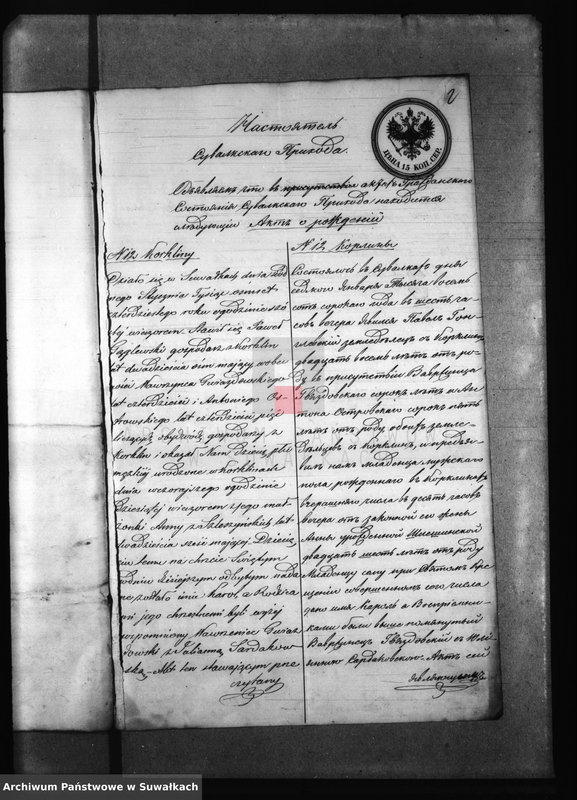 2
Настоятель
Сувалкскаго Прихода.
ЦѢНА 15 КОП. СЕР.
Объявляетъ что въ присутствіи актовъ Гражданскаго
Состоянія Сувалкскаго Прихода находится
слѣдующій Актъ о рожденіи
N 12 Korkliny
Działo się w Suwałkach dnia siód
mego Stycznia Tysiąc ośmset
czterdziestego roku o godzinie szós
tej wieczorem. Stawił się Paweł
gospodarz z Korklin
lat dwadzieścia ośm mający w obec
ności Wawrzyńca Gwiazdowskiego
lat czterdzieści i Antoniego Os-
trowskiego lat czterdzieści pięć
liczących obydwóch gospodarzy z
Korklin i okazał Nam Dziecię płci
męzkiej urodzone w Korklinach
dnia wczorajszego o godzinie
Dziesiątej wieczorem z jego mał
żonki Anny z lat
dwadzieścia sześć mającej. Dziecię
ciu temu na chrzcie Świętym
w dniu dzisiejszym odbytym nada
ne zostało imie Karol, a Rodzica
mi jego chrzestnemi byli wyżej
wspomniony Wawrzeniec Gwiaz
dowski z Julianną Sardakow
ską. Akt ten stawającym prze
czytany
N 12 Корклины
Состоялось въ Сувалкахъ дня
седмаго Января Тысяча восемь
сотъ сороковаго года въ шесть ча
совъ вечера. Явился Павелъ
земледѣлецъ съ Корклинъ
двадцать восемь лѣтъ отъ ро-
ду въ присутствіи Вавржинца
Гвяздовскаго сорокъ лѣтъ и Ан
тона Островскаго сорокъ пять
лѣтъ отъ роду обоихъ земле-
дѣльцовъ съ Корклинъ, и предъя-
вилъ намъ младенца мужскаго
пола рожденнаго въ Корклинахъ
вчерашняго числа въ десять часовъ
вечера отъ законной его жены
Анны урожденной
двадцать шесть лѣтъ отъ роду
Младенцу сему при Святомъ Кре
щеніи совершенномъ сего числа
дано имя Карлъ а Воспріемни-
ками были выше помянутый
Вавржинецъ Гвяздовскій съ Юлі
янною Сардаковскою. Актъ сей
Archiwum Państwowe w Suwałkach